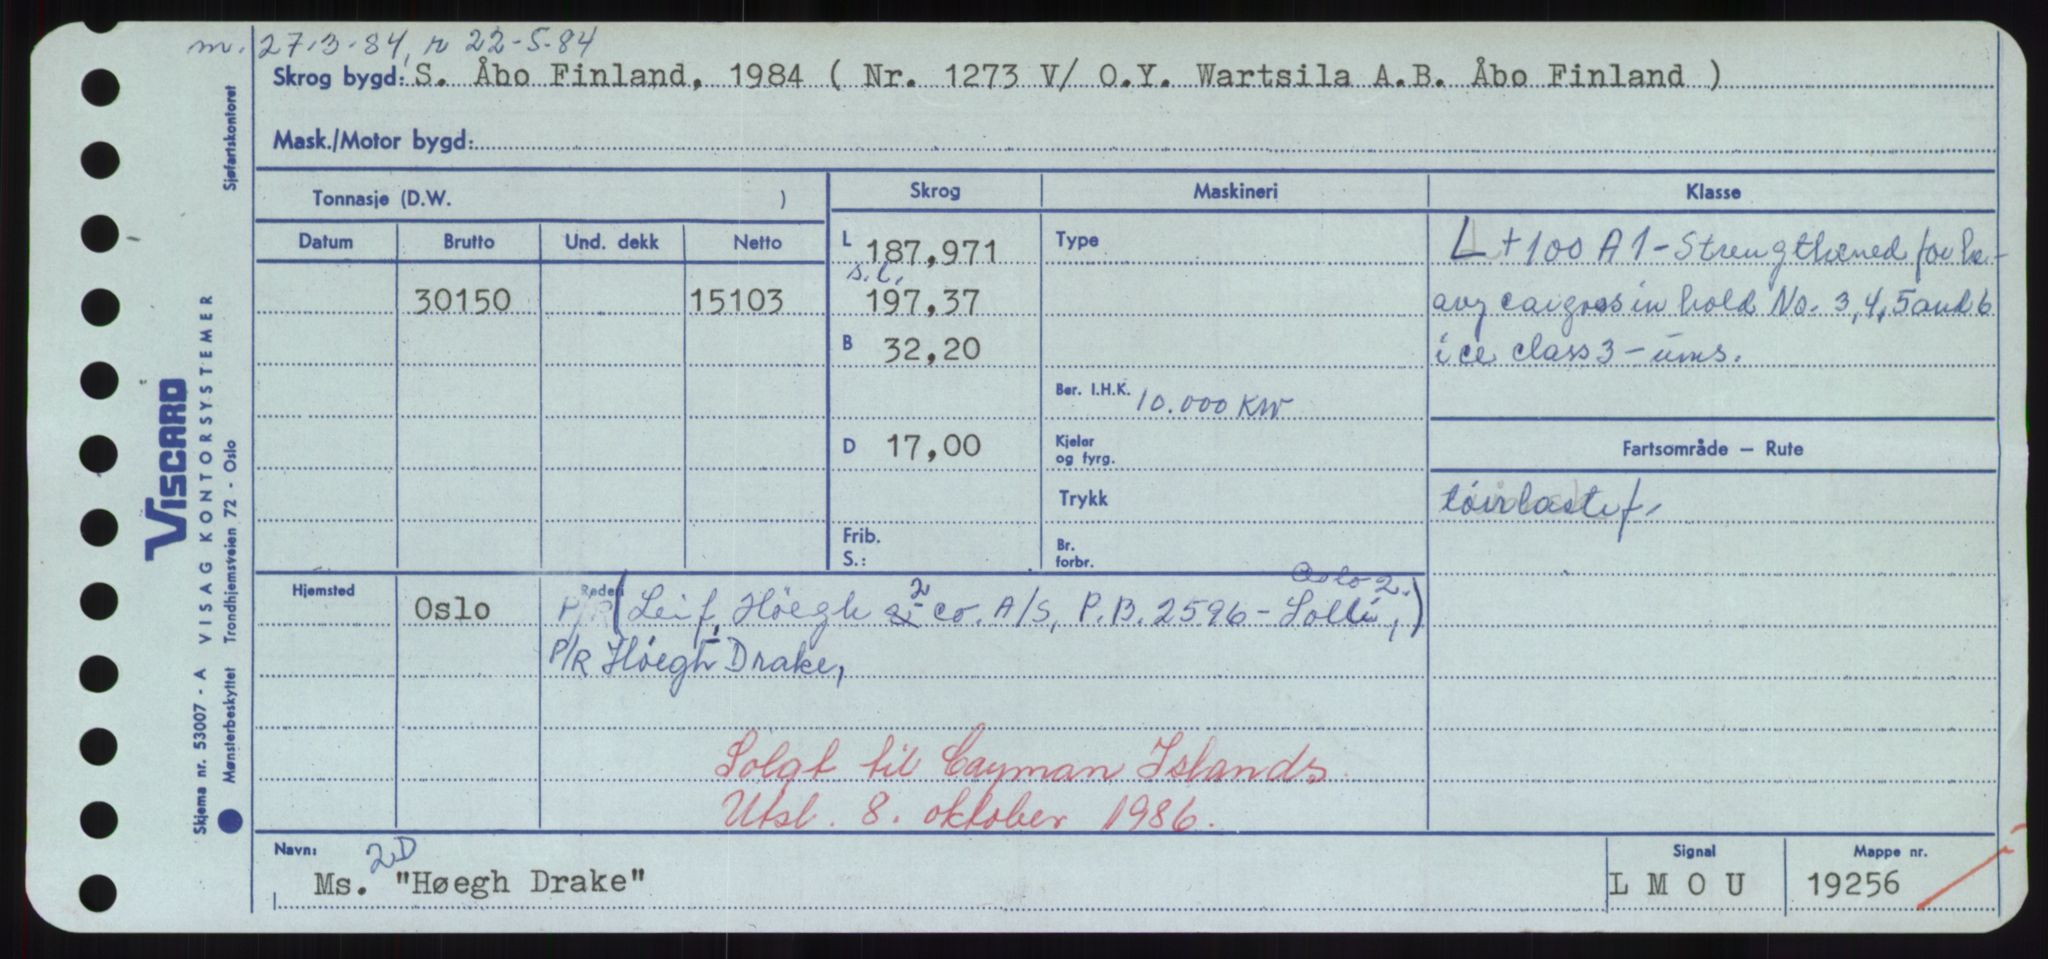 m. 27-3-84, r 22-5-84
Skrog bygd: S. Åbo Finland, 1984 ( Nr. 1273 V/ O.Y. Wartsila A.B. Åbo Finland )
Mask./Motor bygd:
Tonnasje (D.W. )
Skrog
Maskineri
Klasse
Datum
Brutto
Und. dekk
Netto
30150
15103
L 187,971
s.l.
197,37
B 32,20
D 17,00
Frib.
S.:
Type
Ber. I.H.K. 10.000 KW
Kjelar
og fyrg.
Trykk
Br.
forbr.
L + 100 A 1 - Strengthened for he-
avy cargoes in hold No. 3, 4, 5 and 6
ice class 3 - ums.
Fartsområde — Rute
tørrlastef.
Hjemsted
Oslo
Rederi
Oslo 2.
P/R (Leif Höegh & co. A/S, P.B. 2596 - Solli, )
2
P/R Höegh Drake,
Solgt til Cayman Islands
Utsl. 8. oktober 1986.
Navn:
2D
Ms. "Høegh Drake"
Signal
L M O U
Mappe nr.
19256
Sjøfartskontoret
VISCARD
VISAG KONTORSYSTEMER
Trondhjemsveien 72 - Oslo
Skjema nr. 53007 - A
Mønsterbeskyttet